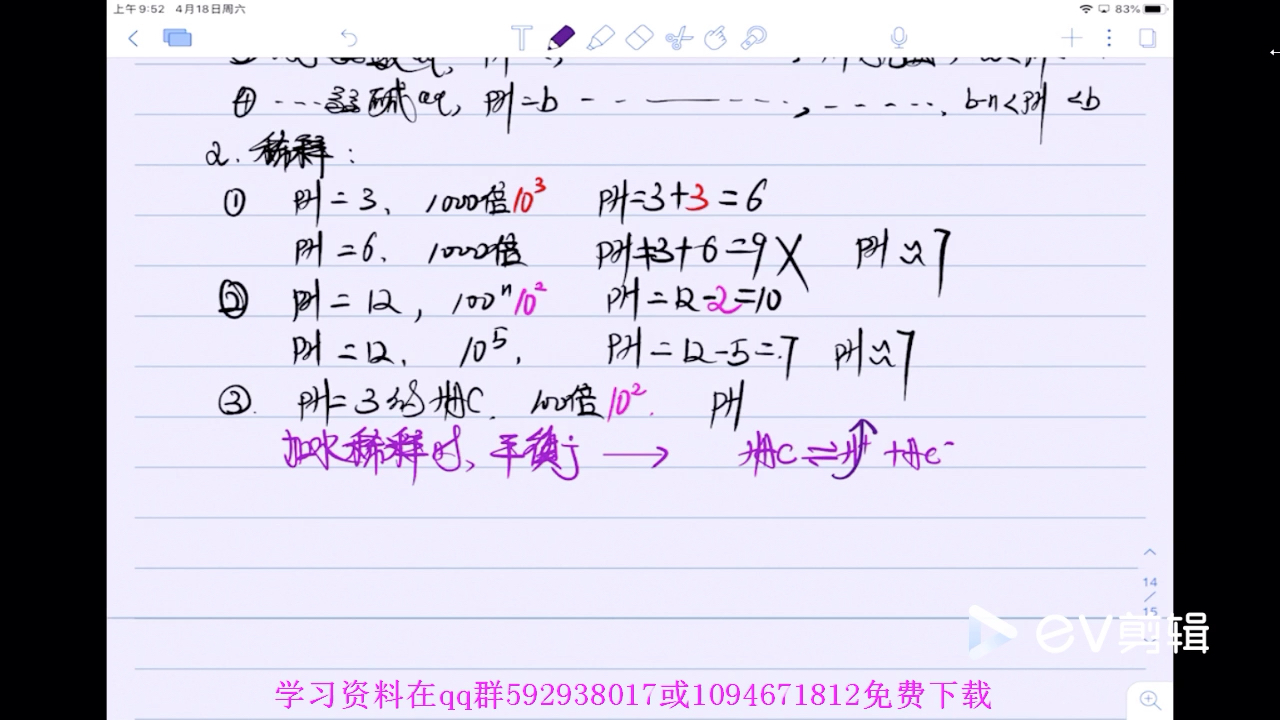 上午9:52 4月18日周六
83%
④ ----弱碱aq, PH=b - - ——— - - -, - - - - - -. b-n<PH<b
2. 稀释:
① PH=3、 1000倍10³ PH=3+3=6
PH=6. 1000倍 PH=3+6=9X PH≈7
② PH=12, 100"10² PH=12-2=10
PH=12. 10⁵. PH=12-5=7 PH≈7
③. PH=3的HAC. 100倍10². PH
加水稀释时, 平衡 → HAC⇌H⁺+AC⁻
14
/
15
EV剪辑
学习资料在qq群592938017或1094671812免费下载